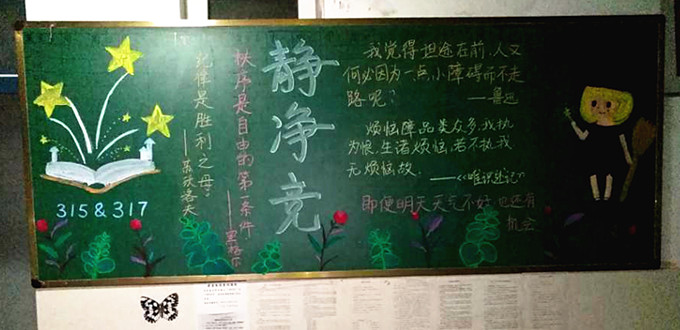 315 & 317
纪律是胜利之母。
——苏沃洛夫
秩序是自由的第一条件
——黑格尔
静净竞
我觉得坦途在前,人又
何必因为一点小障碍而不走
路呢?
——鲁迅
烦恼障品类众多,我执
为根,生诸烦恼,若不执我
无烦恼故。
——《唯识述记》
即使明天天气不好,也还有
机会